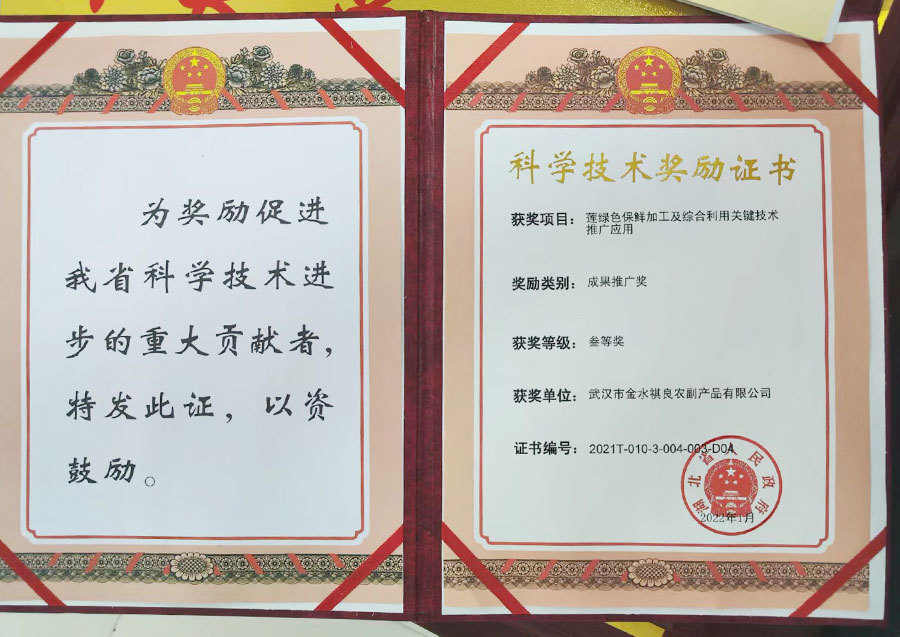 为奖励促进
我省科学技术进
步的重大贡献者，
特发此证，以资
鼓励。
科学技术奖励证书
获奖项目：莲绿色保鲜加工及综合利用关键技术
推广应用
奖励类别：成果推广奖
获奖等级：叁等奖
获奖单位：武汉市金水祺良农副产品有限公司
证书编号：2021T-010-3-004-003-D0A
湖北省人民政府
2022年1月